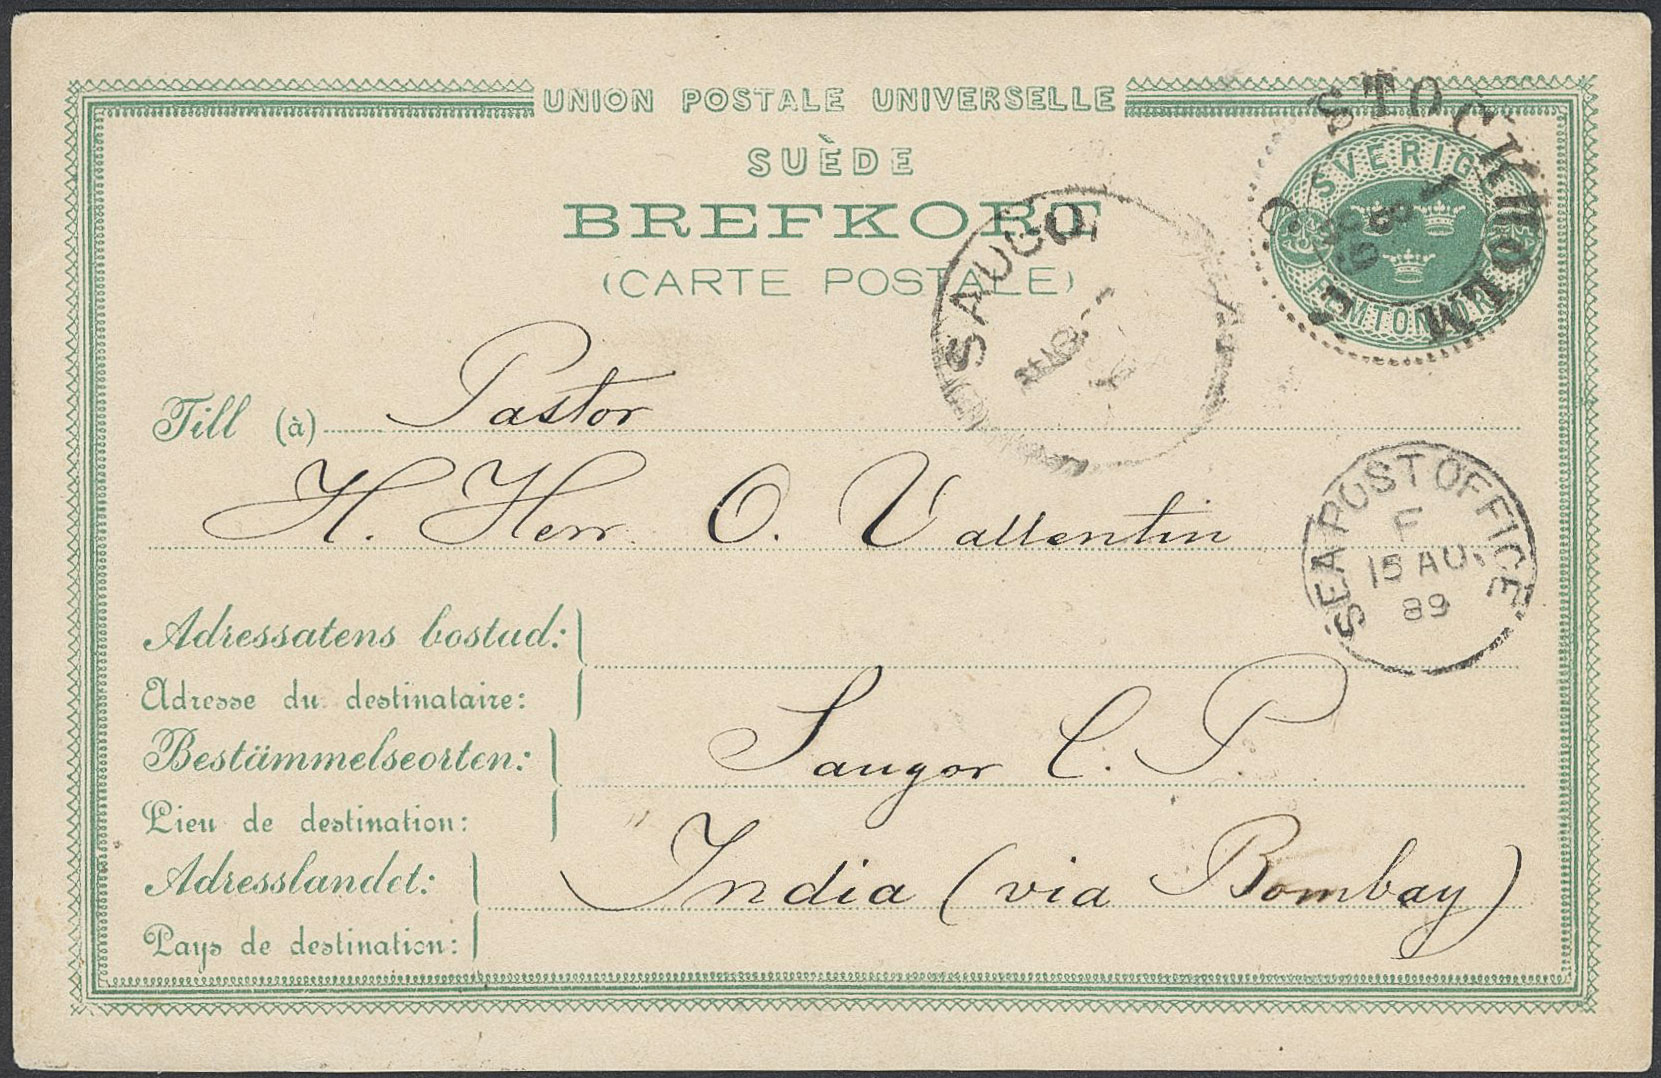 UNION POSTALE UNIVERSELLE
SUÈDE
BREFKORT
(CARTE POSTALE)
STOCKHOLM
SVERIGE
FEMTON ÖRE
SAUGOR
Till (à) Pastor
H. Herr O. Vallentin
SEA POST OFFICE
F
15 AU
89
Adressatens bostad:
Adresse du destinataire:
Bestämmelseorten: Saugor C. P.
Lieu de destination:
Adresslandet: India (via Bombay)
Pays de destination: